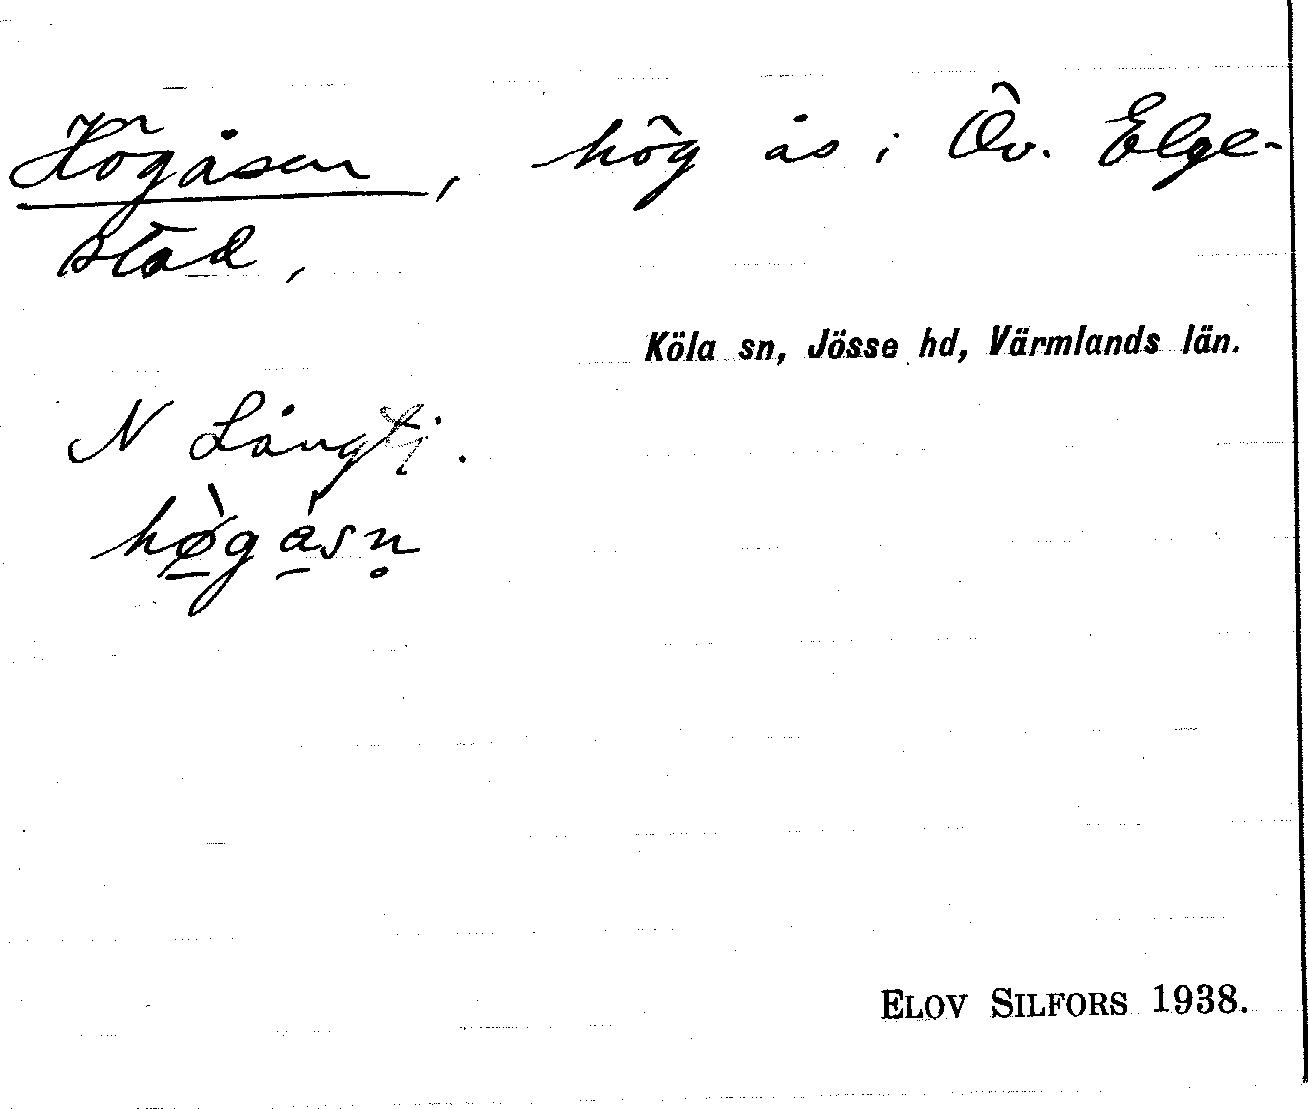 Högåsen, hög ås i Öv. Elge-
stad,
Köla sn, Jösse hd, Värmlands län.
N Långtj.
hø̱̀gå̱sn̥
ELOV SILFORS 1938.